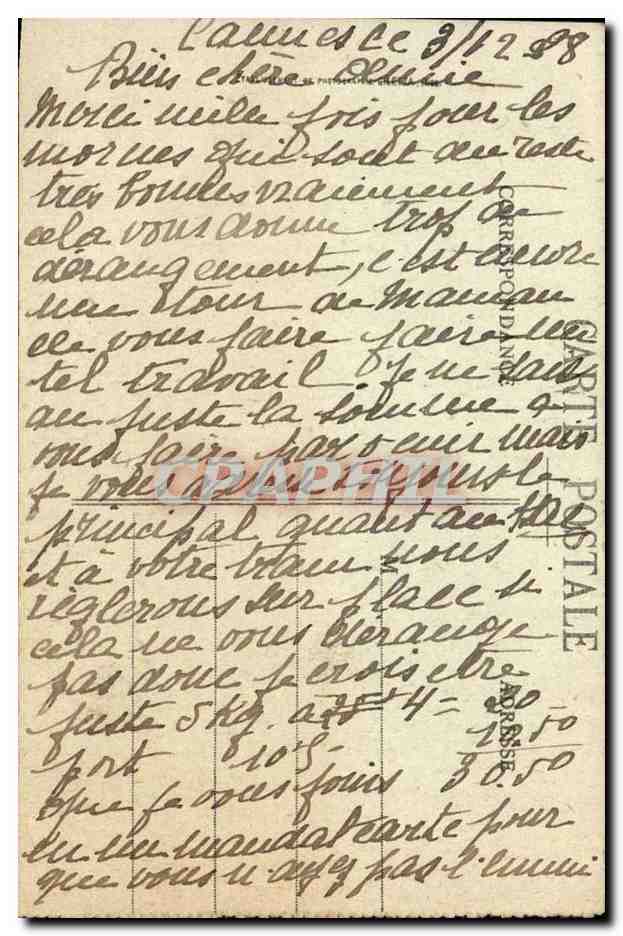 Cannes ce 3/12 38
Bien chère Annie
Merci mille fois pour les
mornes qui sont du reste
très bonnes vraiement
cela vous donne trop de
dérangement, c'est encore
une tour de Maman
de vous faire faire un
tel travail Je ne sais
au juste la somme a
vous faire parvenir mais
je vous
principal quant au
et à votre tram nous
règlerons sur place si
cela ne vous dérange
pas donc je crois etre
juste 5 Kg. à 4 = 20
port 10.50
que je vous joins 30.50
en un mandat carte pour
que vous n'ayez pas l'ennui
CARTE POSTALE
CORRESPONDANCE
ADRESSE
M
CPAPHIL